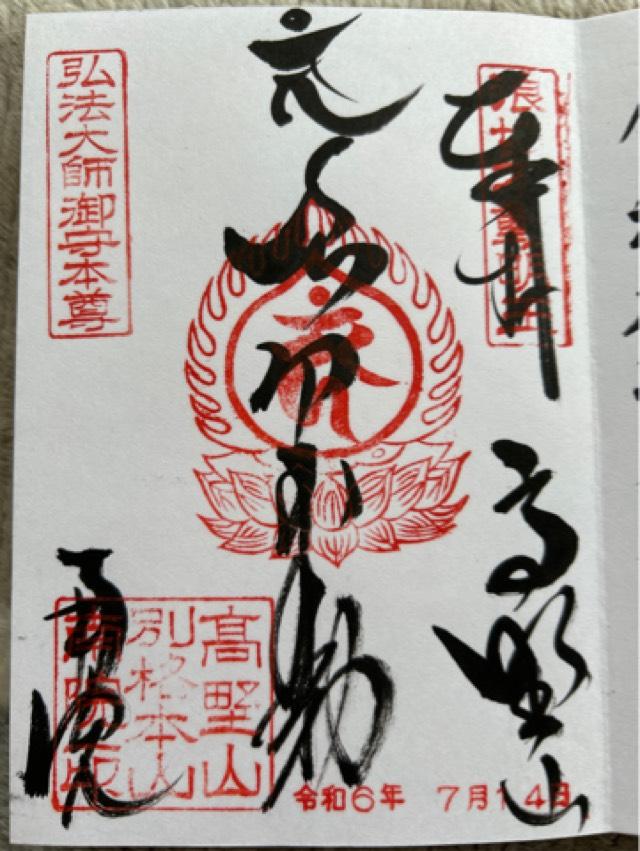 奉拝
高野山
浪切不動
弘法大師御守本尊
南院
髙野山
別格本山
令和6年 7月14日